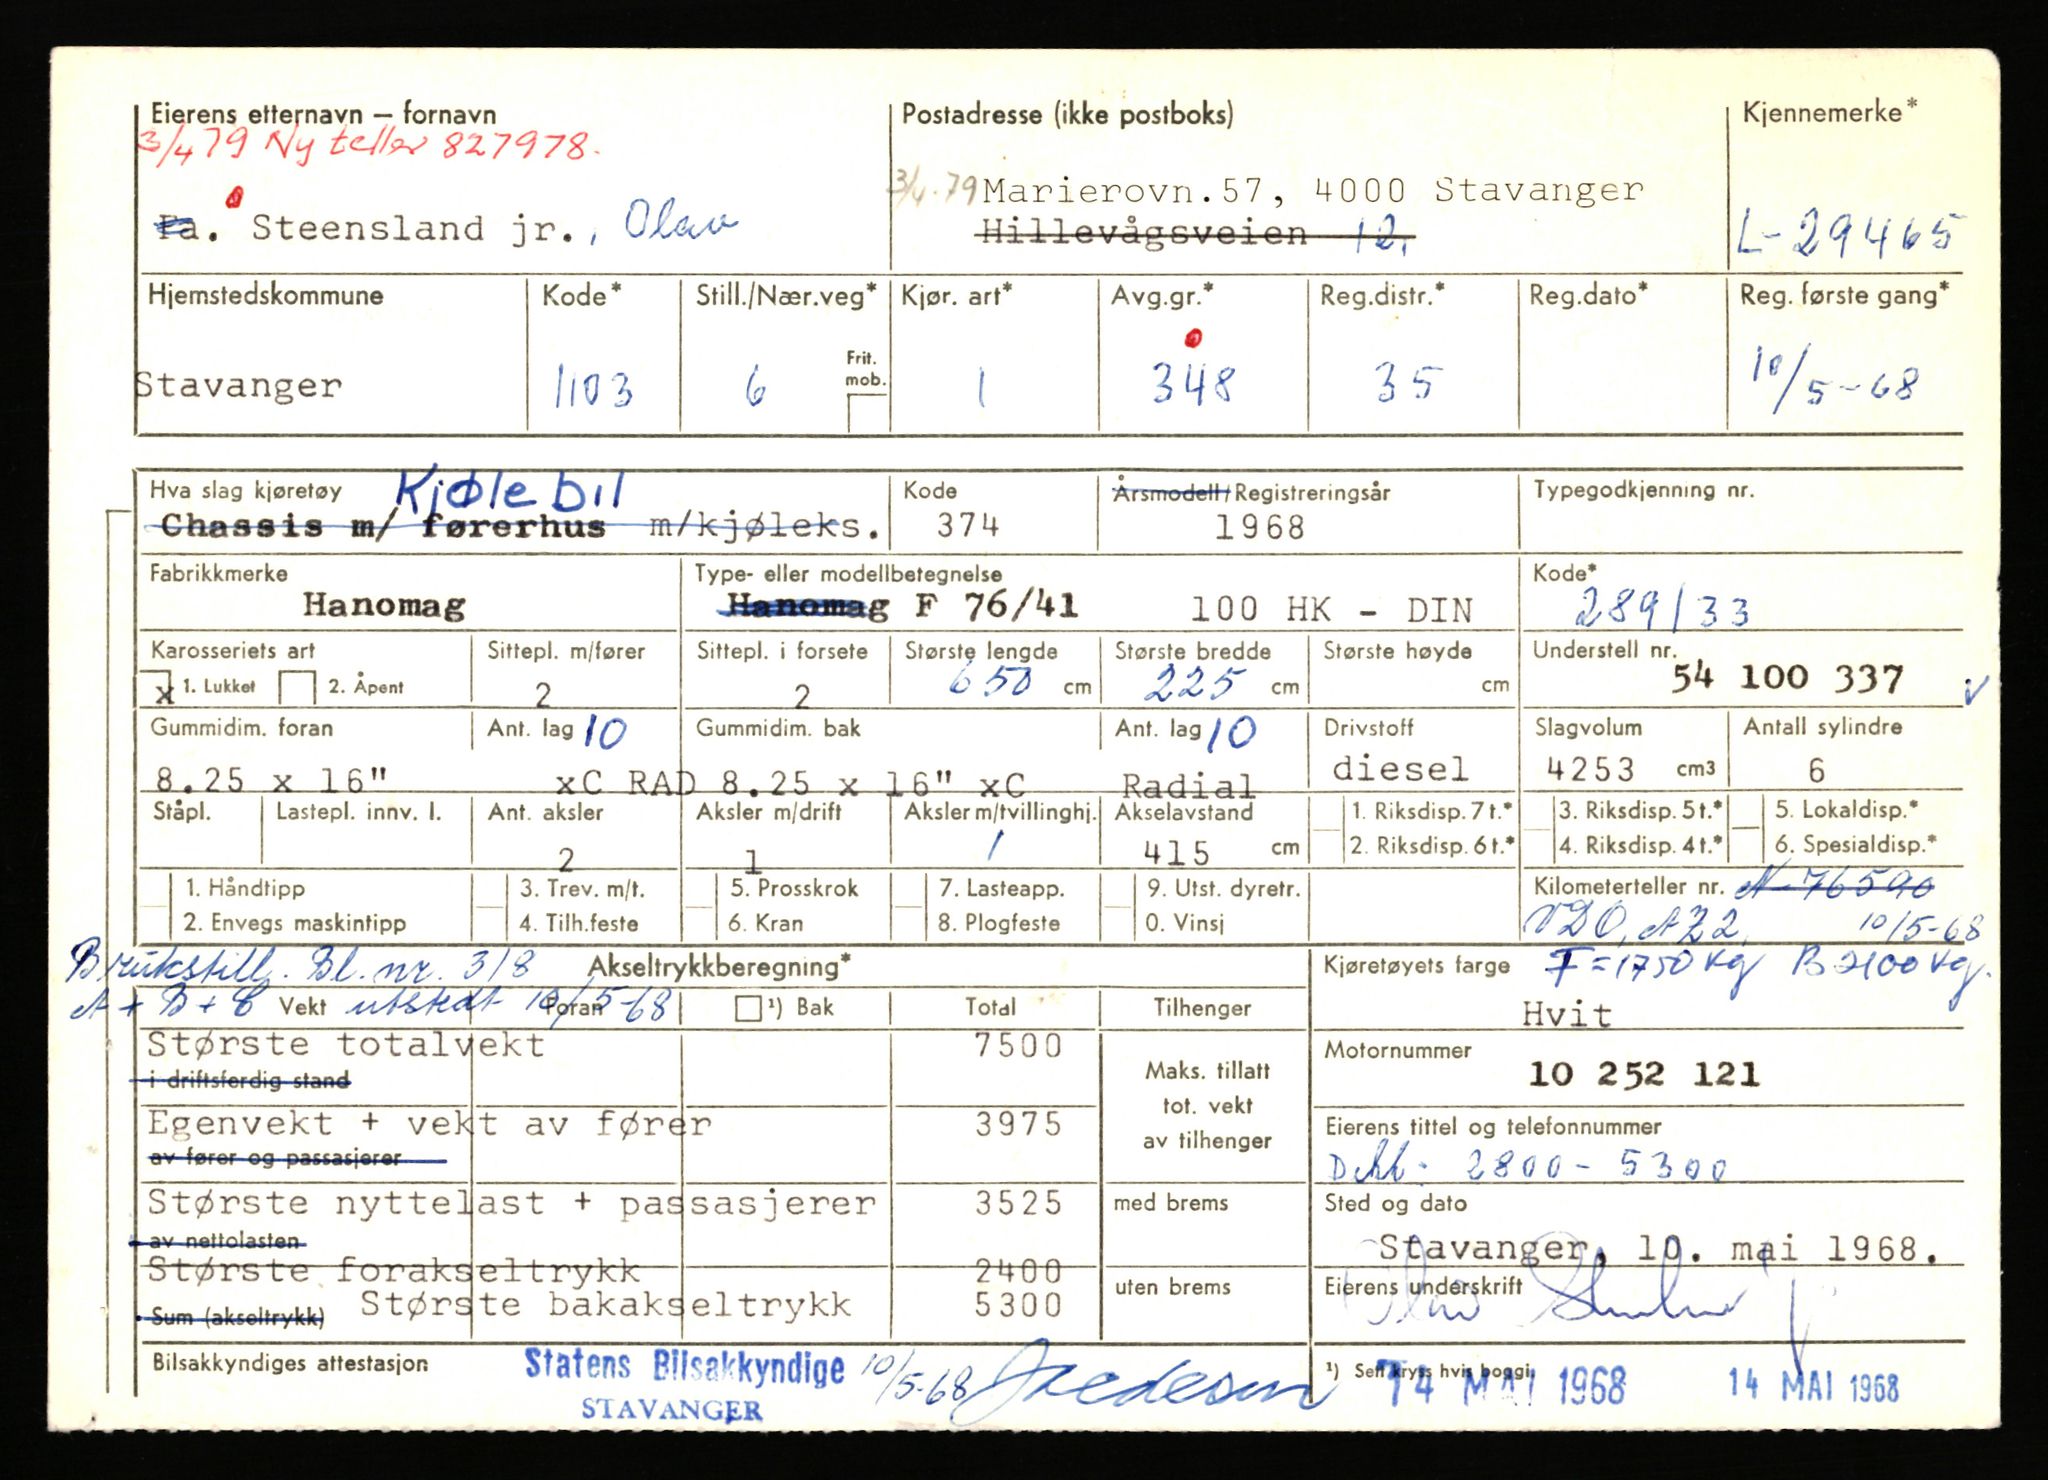 Eierens etternavn — fornavn
Postadresse (ikke postboks)
Kjennemerke*
3/4 79 Ny teller 827978.
3/4.79 Marierovn.57, 4000 Stavanger
Fa. Steensland jr., Olav
Hillevågsveien 12,
L-29465
Hjemstedskommune
Kode*
Still./Nær.veg*
Kjør. art*
Avg.gr.*
Reg.distr.*
Reg.dato*
Reg. første gang*
Stavanger
1103
6
Frit. mob.
1
348
35
10/5-68
Hva slag kjøretøy Kjølebil
Kode
Årsmodell/Registreringsår
Typegodkjenning nr.
Chassis m/ førerhus m/kjøleks.
374
1968
Fabrikkmerke
Type- eller modellbetegnelse
Kode*
Hanomag
Hanomag F 76/41 100 HK - DIN
289/33
Karosseriets art
Sittepl. m/fører
Sittepl. i forsete
Største lengde
Største bredde
Største høyde
Understell nr.
x 1. Lukket 2. Åpent
2
2
650 cm
225 cm
cm
54 100 337
Gummidim. foran
Ant. lag 10
Gummidim. bak
Ant. lag 10
Drivstoff
Slagvolum
Antall sylindre
8.25 x 16" xC RAD 8.25 x 16" xC Radial
diesel
4253 cm3
6
Ståpl.
Lastepl. innv. l.
Ant. aksler
Aksler m/drift
Aksler m/tvillinghj.
Akselavstand
1. Riksdisp. 7 t.*
3. Riksdisp. 5 t.*
5. Lokaldisp.*
2
1
1
415 cm
2. Riksdisp. 6 t.*
4. Riksdisp. 4 t.*
6. Spesialdisp.*
1. Håndtipp
3. Trev. m/t.
5. Prosskrok
7. Lasteapp.
9. Utst. dyretr.
Kilometerteller nr. N-76590
2. Envegs maskintipp
4. Tilh.feste
6. Kran
8. Plogfeste
0. Vinsj
VDO, AZ2, 10/5-68
Brukstill. Bl. nr. 318
Akseltrykkberegning*
Kjøretøyets farge F=1750 kg B 2100 kg.
A + B + C Vekt utstedt 10/5-68
Foran
¹) Bak
Total
Tilhenger
Hvit
Største totalvekt 7500
i driftsferdig stand
Motornummer
Maks. tillatt
tot. vekt
av tilhenger
10 252 121
Egenvekt + vekt av fører 3975
av fører og passasjerer
Eierens tittel og telefonnummer
Dekk: 2800 - 5300
Største nyttelast + passasjerer 3525
av nettolasten
med brems
Sted og dato
Stavanger, 10. mai 1968.
Største forakseltrykk 2400
Sum (akseltrykk) Største bakakseltrykk 5300
uten brems
Eierens underskrift
Bilsakkyndiges attestasjon
Statens Bilsakkyndige
STAVANGER
10/5-68
¹) Sett kryss hvis boggi.
14 MAI 1968
14 MAI 1968